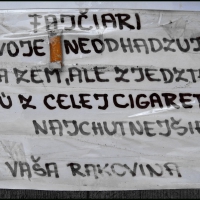 FAJČIARI
VOJE NEODHADZUJ
A ZEM, ALE ZJEDZT
Ú Z CELEJ CIGARET
NAJCHUTNEJŠI
VAŠA RAKOVINA